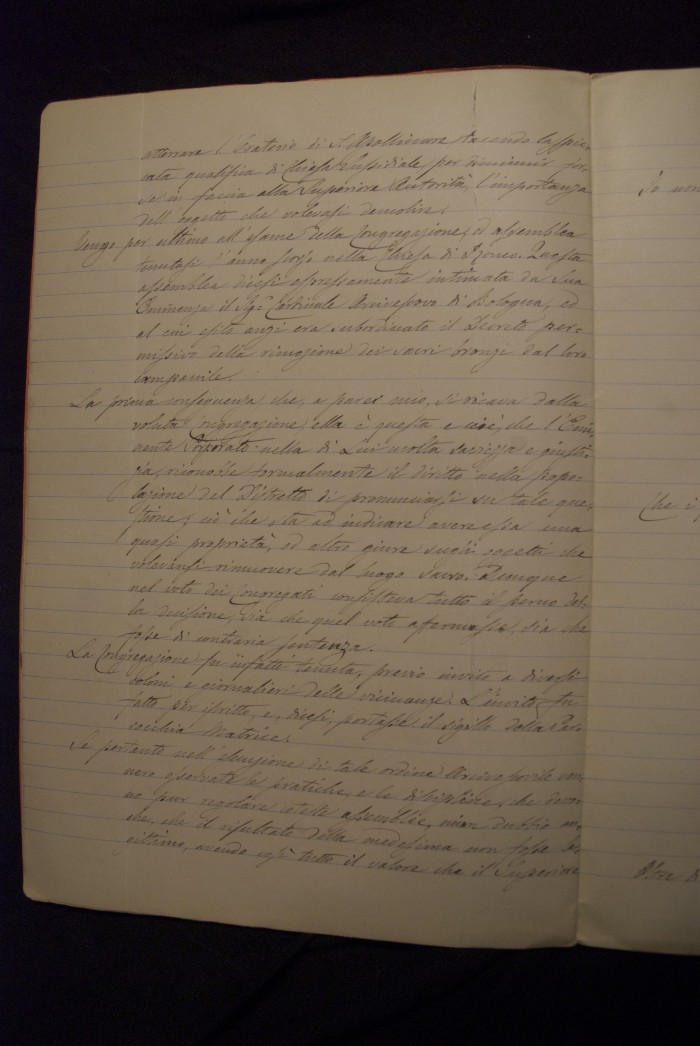 atterrare l'Oratorio di S. Apollinare tacendo la spie-
cata qualifica di Chiesa Sussidiale, per diminuir for-
se in faccia alla Superiore Autorità, l'importanza
dell'oggetto che volevasi demolire.
Vengo per ultimo all'esame della Congregazione, od assemblea
tenutasi l'anno scorso nella Chiesa di Questa
assemblea dicesi espressamente intimata da Sua
Eminenza il Sigr. Cardinale Arcivescovo di Bologna, ed
al cui esito anzi era subordinato il Decreto per-
missivo della rimozione dei sacri bronzi dal loro
campanile.
La prima conseguenza che, a parer mio, si ricava dalla
voluta Congregazione ella è questa e cioè, che l'Emi-
nente Porporato nella di Lui molta saviezza e giusti-
zia, riconobbe formalmente il diritto nella popo-
lazione del Distretto di pronunciarsi su tale que-
stione; ciò che sta ad indicare avere essa una
quasi proprietà, od altro giure sugli oggetti che
volevansi rimuovere dal luogo Sacro. Dunque
nel voto dei Congregati consisteva tutto il perno del-
la decisione, sia che quel voto affermasse, sia che
fosse di contraria sentenza.
La Congregazione fu infatti tenuta, previo invito a diversi
coloni, e giornalieri delle vicinanze. L'invito fu
fatto per iscritto, e, dicesi, portasse il sigillo della Par-
rocchia Matrice.
Se pertanto nell'esecuzione di tale ordine Arcivescovile ven-
nero osservate le pratiche, e le discipline, che devo-
no pur regolare coteste assemblee, niun dubbio an-
che, che il risultato della medesima non fosse le-
gittimo, avendo così tutto il valore che il Superiore
Se non
Che i
Oltre di